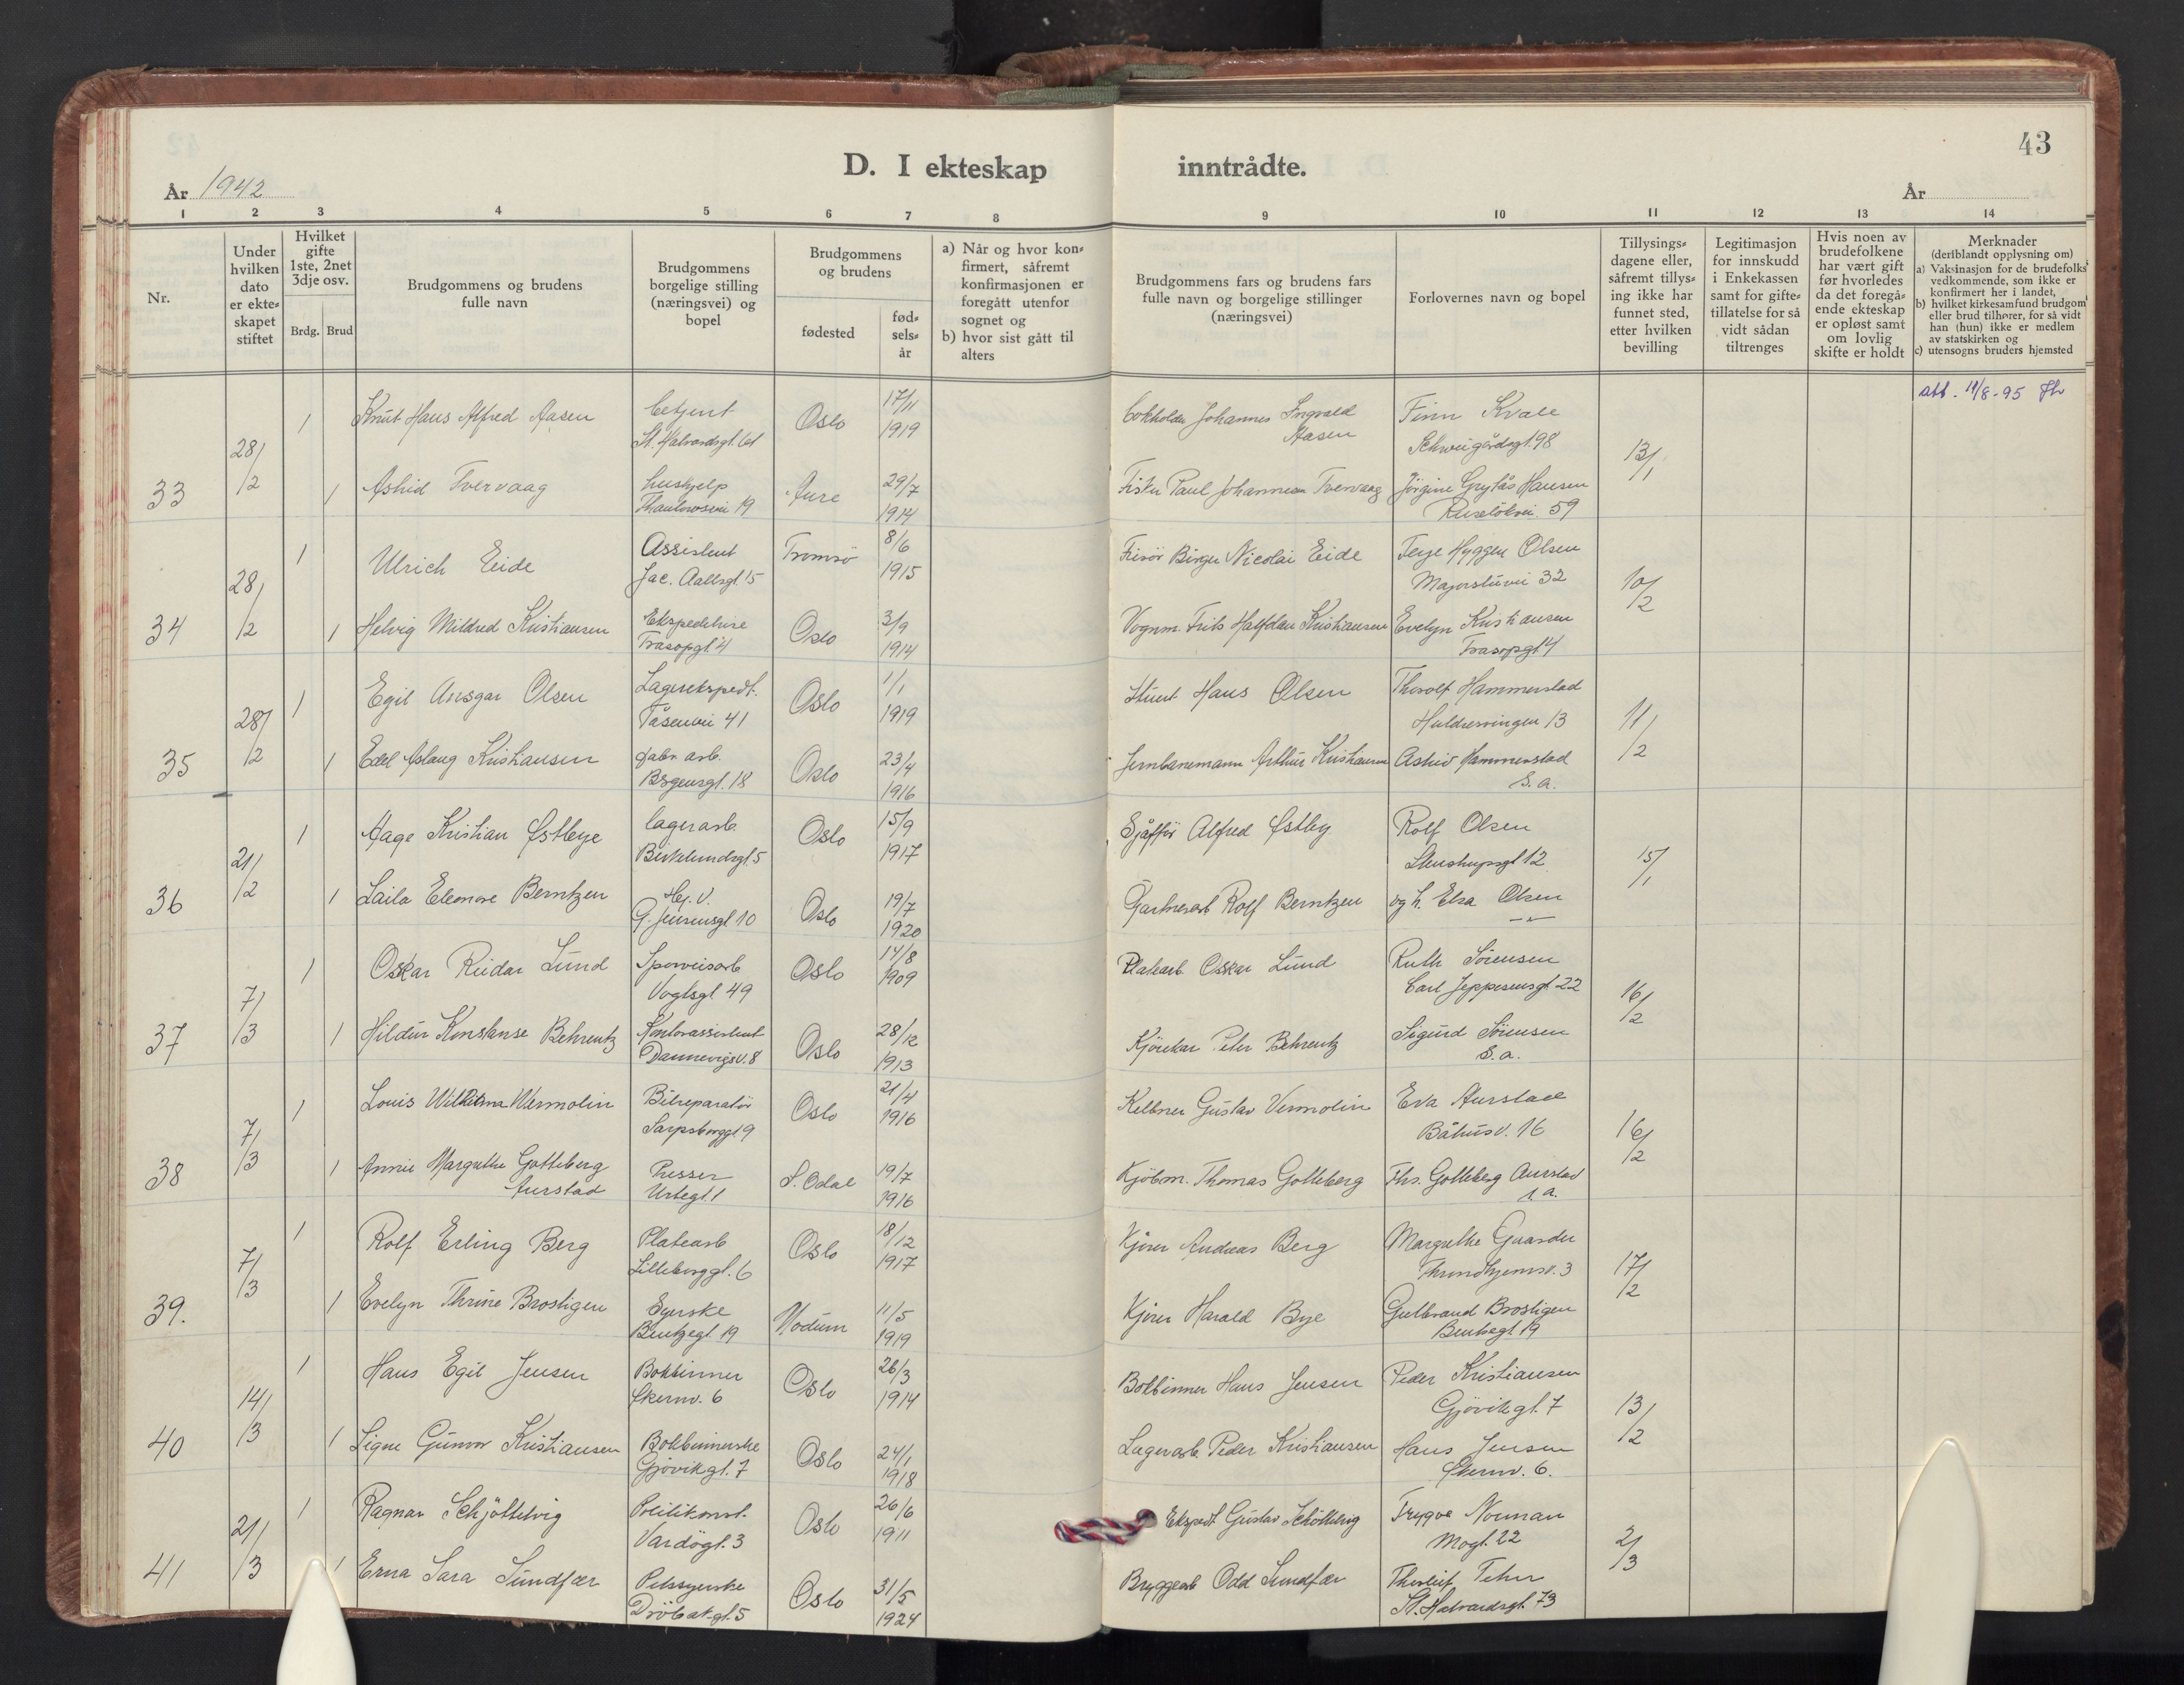 43
D. I ekteskap inntrådte.
År 1942
År
1 2 3 4 5 6 7 8 9 10 11 12 13 14
Nr.
Under hvilken dato er ekte-skapet stiftet
Hvilket gifte 1ste, 2net 3dje osv.
Brdg. Brud
Brudgommens og brudens fulle navn
Brudgommens borgelige stilling (næringsvei) og bopel
Brudgommens og brudens
fødested
fød-sels-år
a) Når og hvor kon-firmert, såfremt konfirmasjonen er foregått utenfor sognet og
b) hvor sist gått til alters
Brudgommens fars og brudens fars fulle navn og borgelige stillinger (næringsvei)
Forlovernes navn og bopel
Tillysings-dagene eller, såfremt tillys-ing ikke har funnet sted, etter hvilken bevilling
Legitimasjon for innskudd i Enkekassen samt for gifte-tillatelse for så vidt sådan tiltrenges
Hvis noen av brudefolkene har vært gift før hvorledes da det foregå-ende ekteskap er opløst samt om lovlig skifte er holdt
Merknader
(deriblandt opplysning om)
a) Vaksinasjon for de brudefolks vedkommende, som ikke er konfirmert her i landet,
b) hvilket kirkesamfund brudgom eller brud tilhører, for så vidt han (hun) ikke er medlem av statskirken og
c) utensogns bruders hjemsted
33 28/2
1 Knut Hans Alfred Aasen Betjent Oslo 17/11 Finn Kvale
St. Halvardsgt. 61 1919 Aasen Schweigårdsgt. 98 13/1
1 Astrid Tvervaag hushjelp Aure 29/7 Fisker Paul Johannesen Tvervaag Jørgine Grytås Hansen
19 1914 Ruseløkvei 59
att. 11/8-95
34 28/2
1 Ulrich Eide Assistent Tromsö 8/6 Frisör Birger Nicolai Eide Hyggen Olsen
Jac. Aallsgt. 15 1915 Majorstuvei 32 10/2
1 Helvig Mildred Kristiansen Ekspeditrise Oslo 3/9 Vognm. Frits Halfdan Kristiansen Evelyn Kristiansen
Frasopgt. 4 1914 Frasopgt 4
35 28/2
1 Egil Ansgar Olsen Lagerekspedt. Oslo 1/1 Stuert Hans Olsen Thorolf Hammerstad
Tåsenvei 41 1919 Huldresvingen 13 11/2
1 Edel Aslaug Kristiansen fabr. arb. Oslo 23/4 Jernbanemann Arthur Kristiansen Astrid Hammerstad
Bergensgt. 18 1916 S. a.
36 21/2
1 Aage Kristian Østbye lagerarb. Oslo 15/9 Sjåffør Alfred Østby Rolf Olsen
Birkelundsgt. 5 1917 Stenstrupsgt 12 15/1
1 Laila Eleonore Berntzen Hj. v. Oslo 19/7 Gartnerarb Rolf Berntzen og h. Elsa Olsen
G. Jensensgt 10 1920
37 7/3
1 Oskar Reidar Lund Sporveisarb Oslo 14/8 Platearb Oskar Lund Ruth Sörensen
Vogtsgt 49 1909 Carl Jeppesensgt. 22 16/2
1 Hildur Konstanse Behrentz Kontorassistent Oslo 28/12 Kjörekar Peter Behrentz Sigurd Sörensen
Dannevigsv. 8 1913 S. a.
38 7/3
1 Louis Wermolin Bilreparatör Oslo 21/4 Kelner Gustav Vermolin Eva Aurstad
Sarpsborggt 9 1916 Båhusv. 16 16/2
1 Annie Margrethe Gotteberg Presser S. Odal 19/7 Kjöbm. Thomas Gotteberg Ths. Gotteberg Aurstad
Aurstad Urtegt. 1 1916 s. a.
39. 7/3
1 Rolf Erling Berg Platearb Oslo 18/12 Kjörer Andreas Berg Margrethe Gaarder
Lilleborggt. 6 1917 Throndhjemsv. 3 17/2
1 Evelyn Thrine Brostigen Syerske Modum 11/5 Kjörer Harald Bye Gulbrand Brostigen
Bentsegt. 19 1919 Bentsegt 19
40 14/3
1 Hans Egil Jensen Bokbinner Oslo 26/3 Bokbinner Hans Jensen Peder Kristiansen
Økernv. 6 1914 Gjövikgt. 7 13/2
1 Signe Gunvor Kristiansen Bokbinnerske Oslo 24/1 Lagerarb. Peder Kristiansen Hans Jensen
Gjövikgt. 7 1918 Økernv. 6.
41 21/3
1 Ragnar Schjöttelvig Politikonst. Oslo 26/6 Ekspedt Gustav Schöttelvig Trygve Norman
Vardögt. 3 1911 Mogt. 22 2/3
1 Erna Sara Sundfær Pelssyerske Oslo 31/5 Bryggearb Odd Sundfær Thorleif
Dröbakgt. 5 1924 St. Halvardsgt. 73